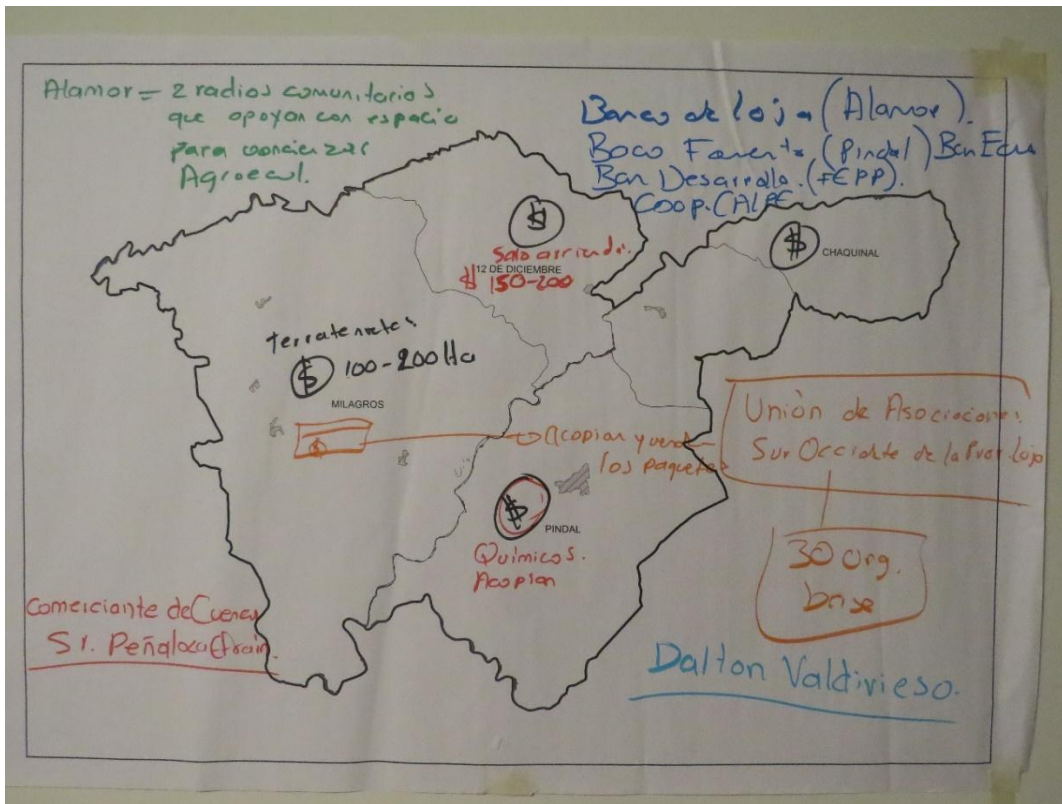 Alamor = 2 radios comunitarios
que apoyan con espacio
para
Agroecul.
Banco de loja (Alamor).
Boco Fomento (Pindal) Ban Ecu
Ban Desarrollo. (FEPP).
Coop. CALPE
$
Solo arriendo.
12 DE DICIEMBRE
$ 150-200
$
CHAQUINAL
terratenientes
$ 100-200 Ha
MILAGROS
$
Acopian y vend
los paquetes
Unión de Asociaciones
Sur Occidente de la Prov. Loja
30 Org.
base
$
PINDAL
Químicos.
Acopian
Comerciante de Cuenca
Sr. Peñaloza Efrain.
Dalton Valdivieso.